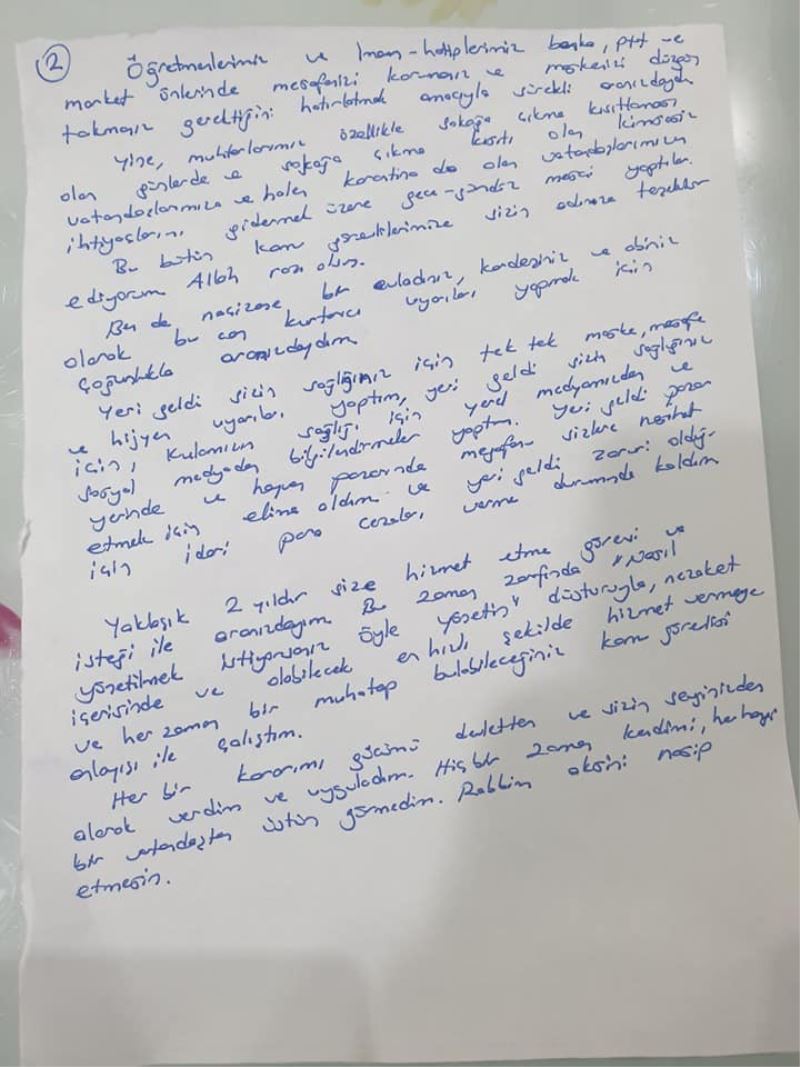 2
Öğretmenlerimiz ve İmam-hatiplerimiz banka, ptt ve
market önlerinde mesafenizi korumanız ve maskenizi düzgün
takmanız gerektiğini hatırlatmak amacıyla sürekli aranızdaydı
Yine, muhtarlarımız özellikle sokağa çıkma kısıtlaması
olan günlerde ve sokağa çıkma kısıtı olan kimsesiz
vatandaşlarımıza ve halen karantina da olan vatandaşlarımızın
ihtiyaçlarını gidermek üzere gece-gündüz mesai yaptılar.
Bu bütün kamu görevlilerimize sizin adınıza teşekkür
ediyorum Allah razı olsun.
Ben de naçizane bir evladınız, kardeşiniz ve abiniz
olarak bu can kurtarıcı uyarıları yapmak için
çoğunlukla aranızdaydım
Yeri geldi sizin sağlığınız için tek tek maske, mesafe
ve hijyen uyarıları yaptım, yeri geldi sizin sağlığınız
için, kulamızın sağlığı için yerel medyamızdan ve
sosyal medyadan bilgilendirmeler yaptım. Yeri geldi pazar
yerinde ve hayvan pazarında megafonu sizlere nasihat
etmek için elime aldım ve yeri geldi zaruri olduğu
için idari para cezaları verme durumunda kaldım
Yaklaşık 2 yıldır size hizmet etme görevi ve
isteği ile aranızdayım. Bu zaman zarfında "Nasıl
yönetilmek istiyorsanız öyle yönetin" düsturuyla, nezaket
içerisinde ve olabilecek en hızlı şekilde hizmet vermeye
ve her zaman bir muhatap bulabileceğiniz kamu görevlisi
anlayışı ile çalıştım.
Her bir kararımı gücümü devletten ve sizin sevginizden
alarak verdim ve uyguladım. Hiçbir zaman kendimi, herhangi
bir vatandaştan üstün görmedim. Rabbim aksini nasip
etmesin.